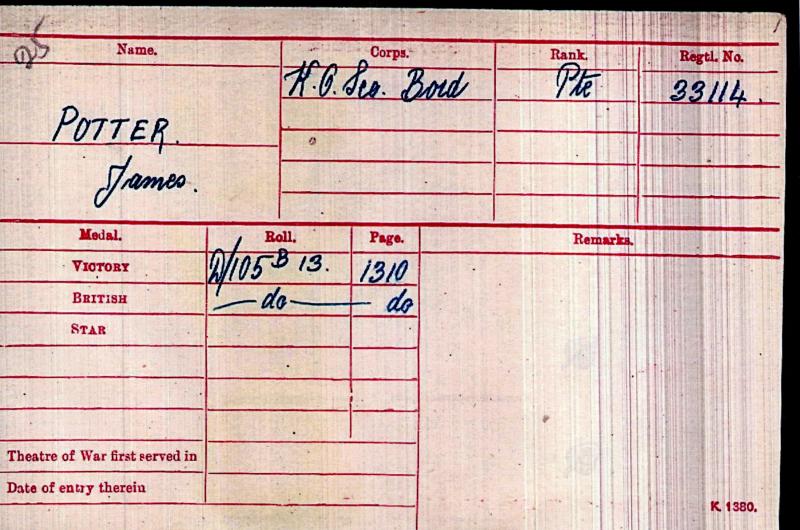 25
Name. Corps. Rank. Regtl. No.
K.O. Sco. Bord Pte 33114.
POTTER.
James.
Medal. Roll. Page. Remarks.
VICTORY D/105 B 13. 1310
BRITISH — do — do
STAR
Theatre of War first served in
Date of entry therein
K. 1380.